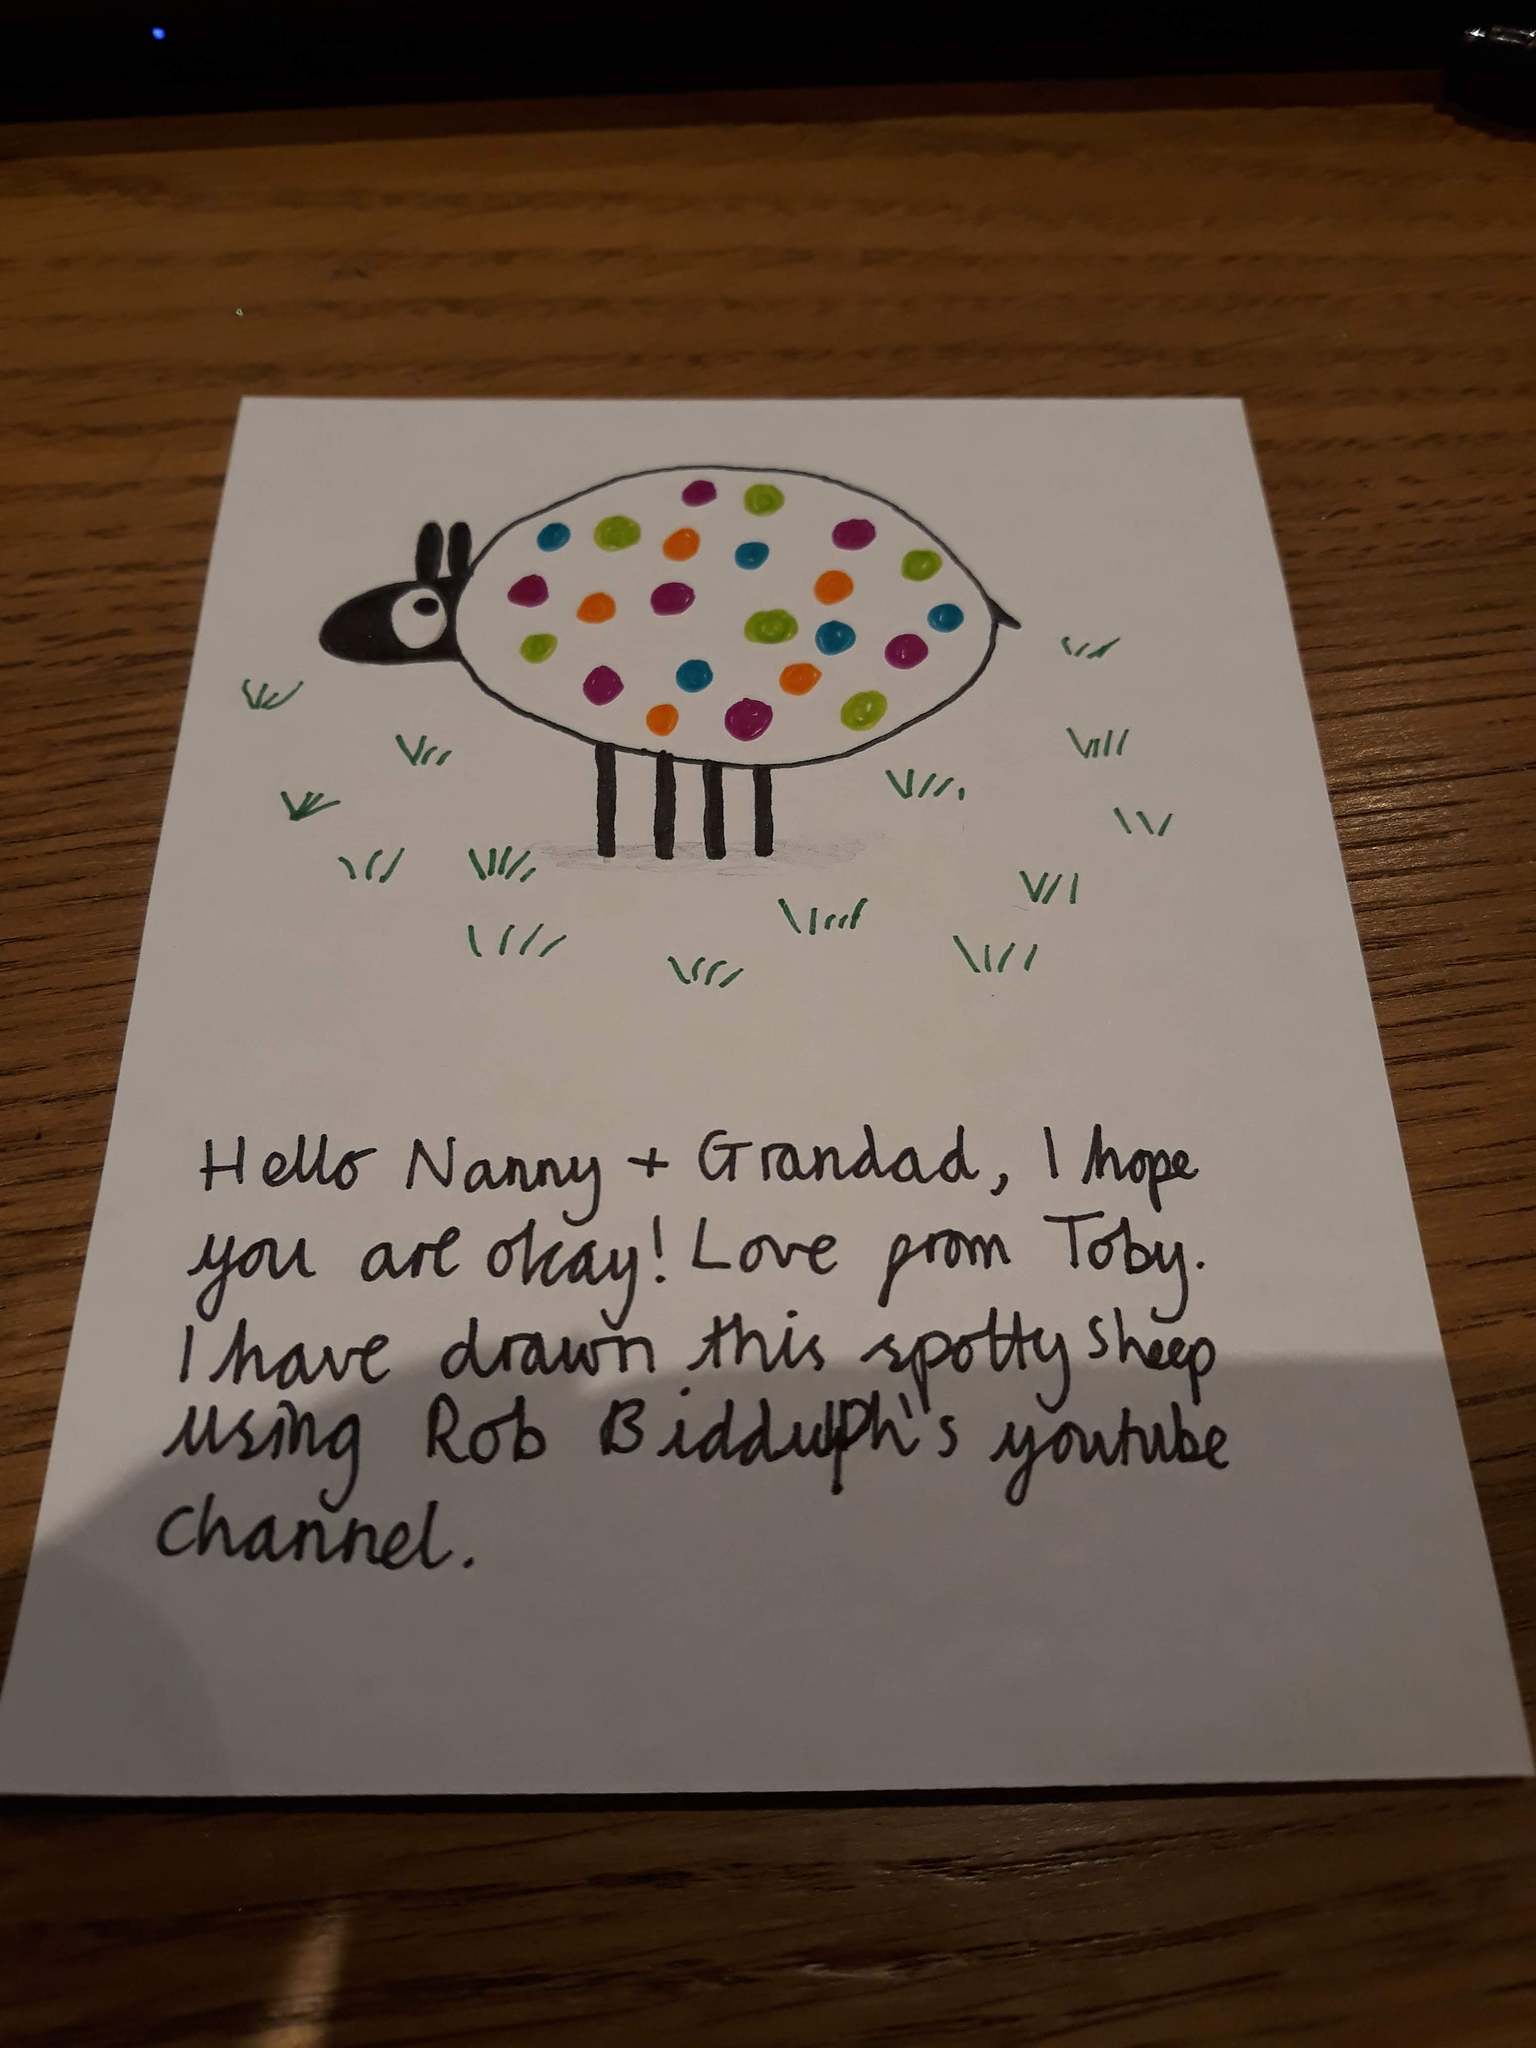 Hello Nanny + Grandad, I hope
you are okay! Love from Toby.
I have drawn this spotty sheep
using Rob Biddulph's youtube
channel.